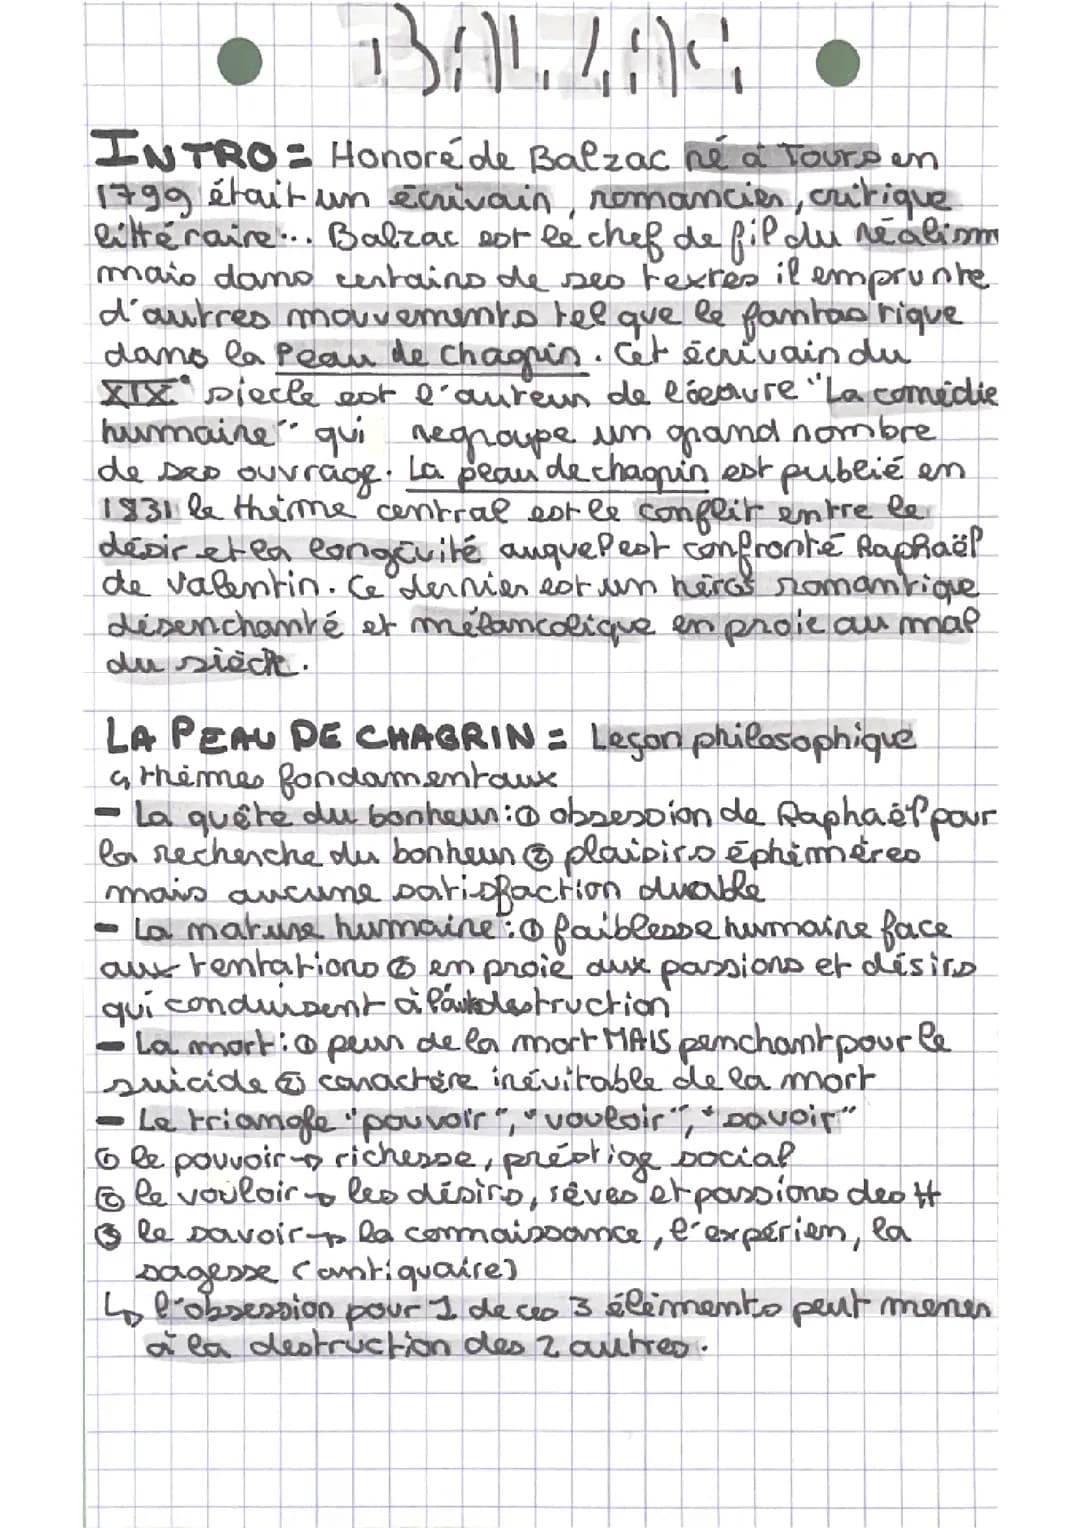 BALZAC
INTRO = Honoré de Balzac né à Tours en
1799 était un écrivain, romancier, critique
littéraire... Balzac est le chef de fil du réalism
mais dans certains de ses textes il emprunte
d'autres mouvements tel que le fantastique
dans la Peau de chagrin. Cet écrivain du
XIX° siecle est l'auteur de l'oeuvre "La comédie
humaine" qui regroupe un grand nombre
de ses ouvrage. La peau de chagrin est publié en
1831 le thème central est le conflit entre le
désir et la longévité auquel est confronté Raphaël
de Valentin. Ce dernier est un héros romantique
désenchanté et mélancolique en proie au mal
du siècle.
LA PEAU DE CHAGRIN = Leçon philosophique
4 thèmes fondamentaux
- La quête du bonheur : ① obsession de Raphaël pour
la recherche du bonheur ② plaisirs éphémères
mais aucune satisfaction durable
- La nature humaine : ① faiblesse humaine face
aux tentations ② en proie aux passions et désirs
qui conduisent à l'autodestruction
- La mort : ① peur de la mort MAIS penchant pour le
suicide ② caractère inévitable de la mort
- Le triangle "pouvoir", "vouloir", "savoir"
① le pouvoir → richesse, préstige social
② le vouloir → les désirs, rêves et passions des H
③ le savoir → la connaissance, l'expérien, la
sagesse (antiquaire)
↳ l'obsession pour 1 de ces 3 éléments peut mener
à la destruction des 2 autres.